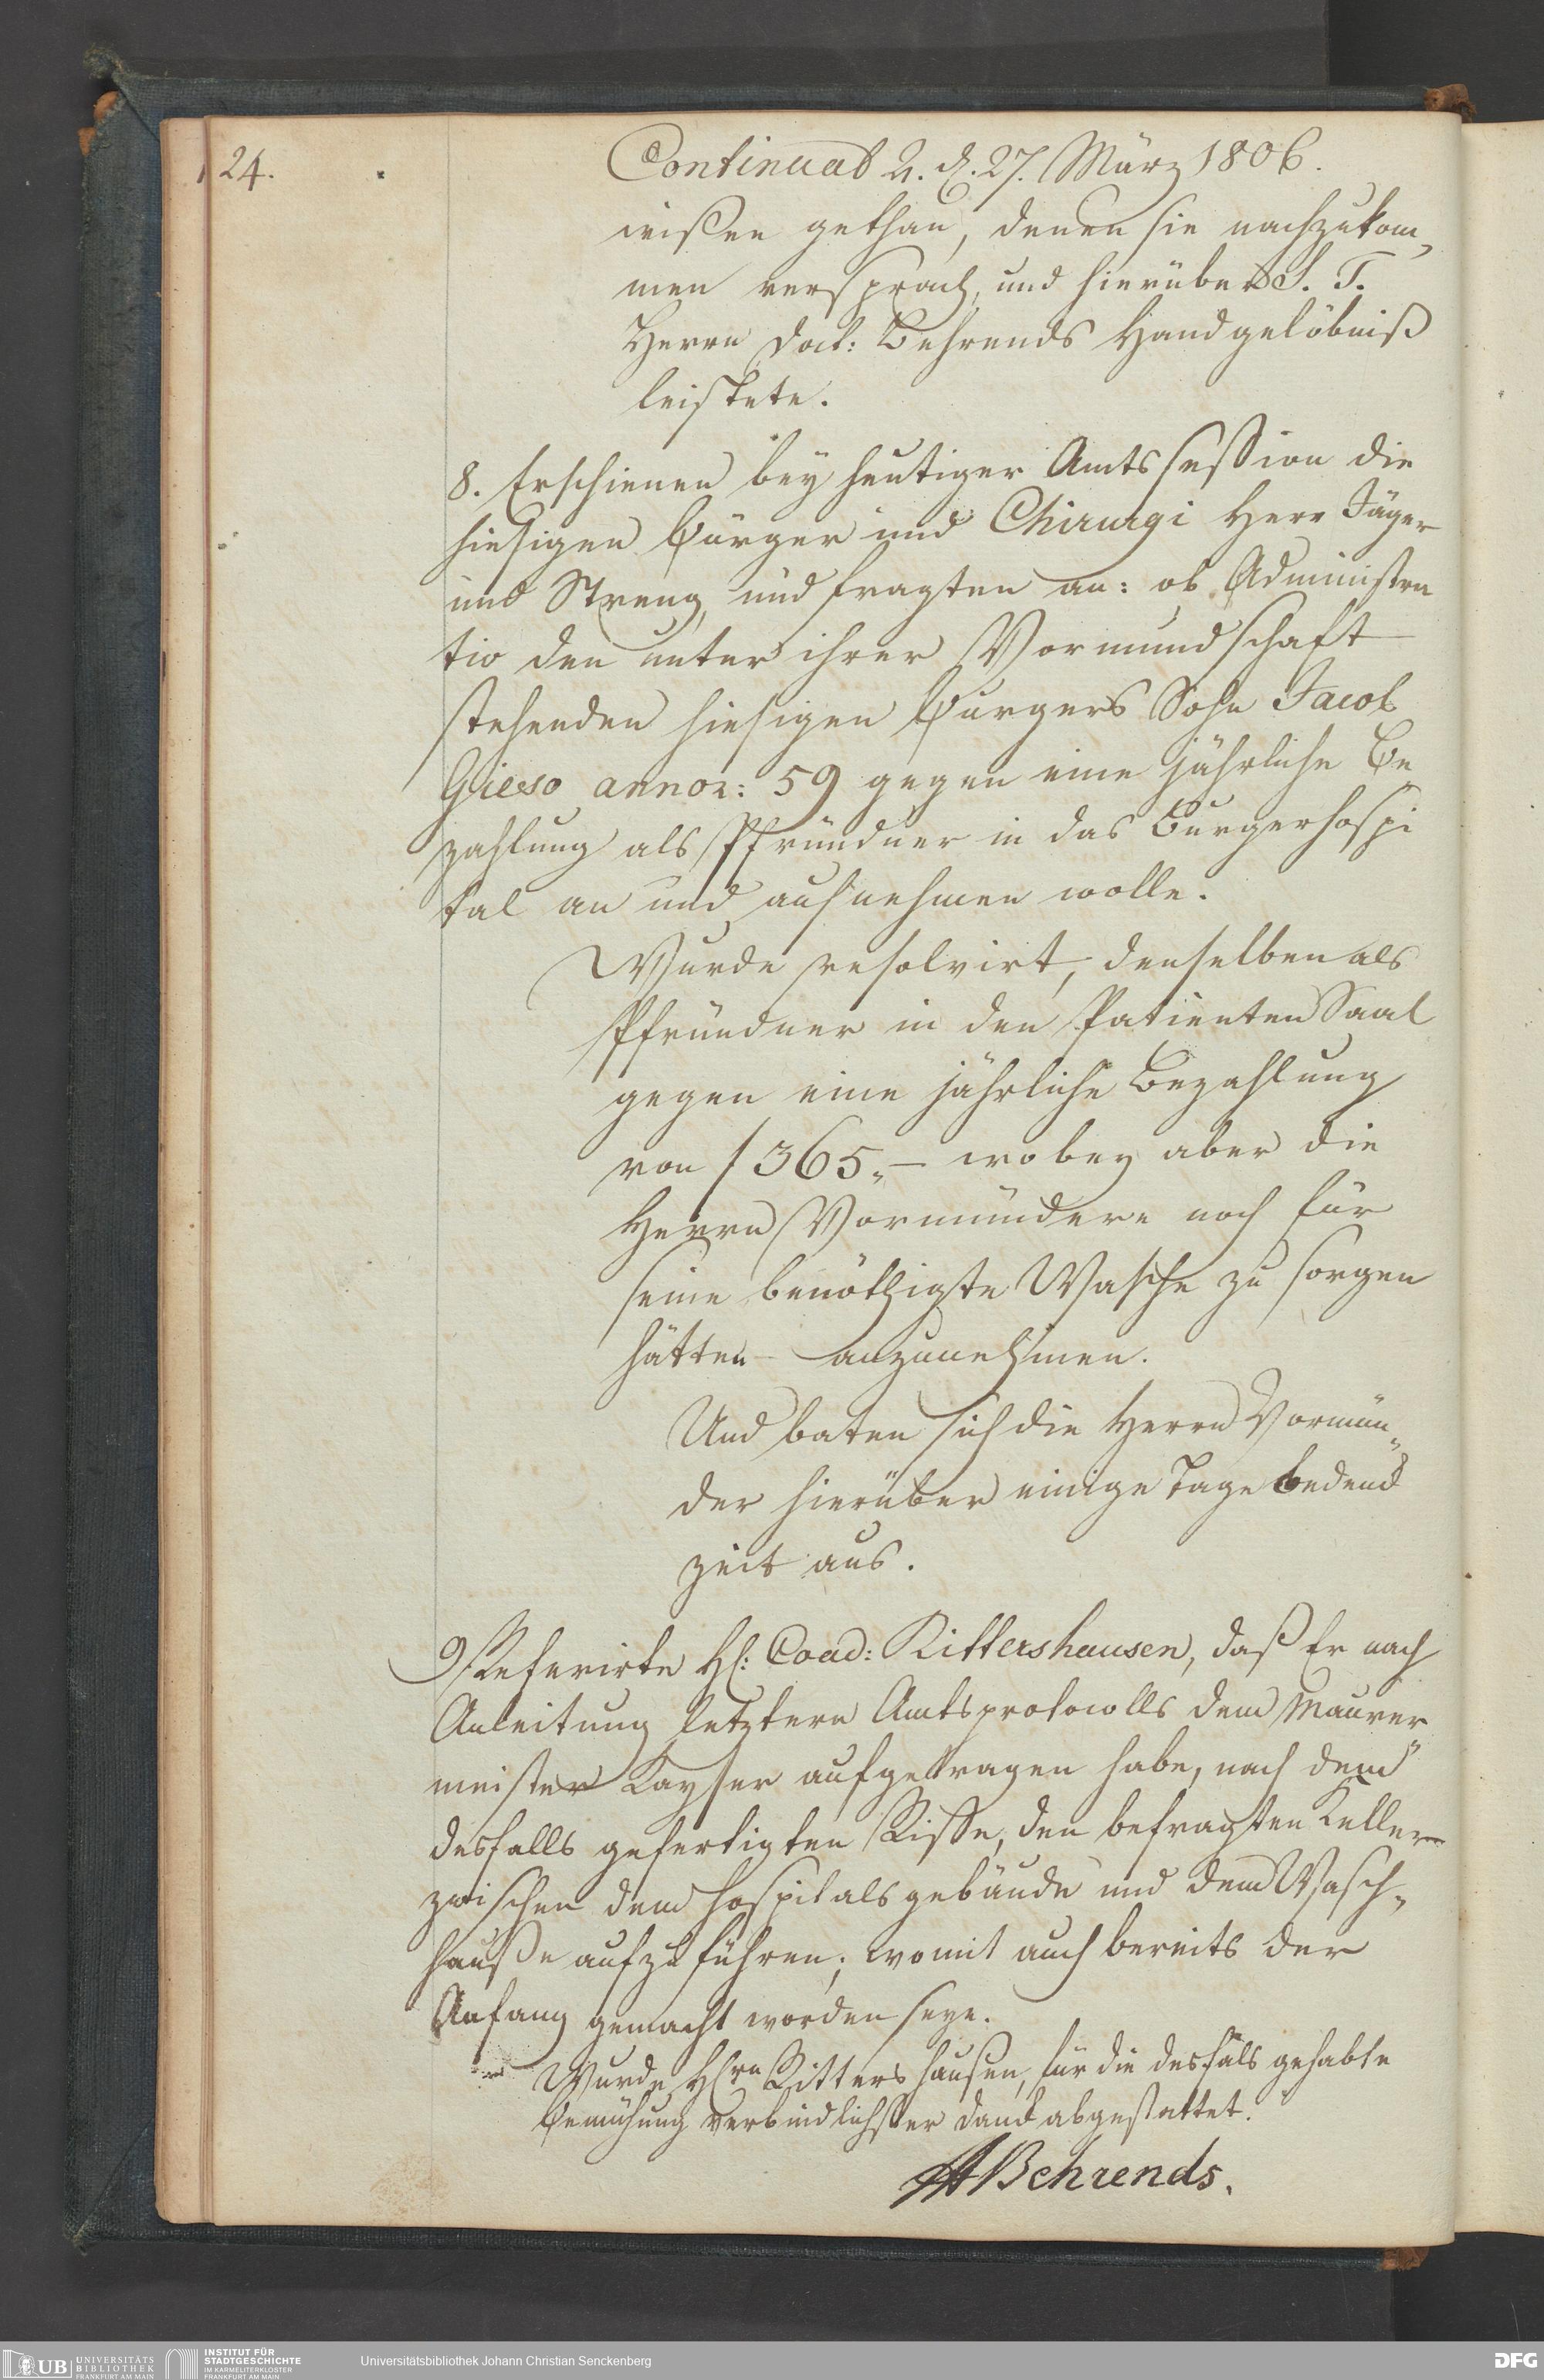 24.
Continuat 2. d. 27. März 1806.
wissen gethan, denen sie nachzukom,
men versprach, und hierüber S. T.
Herrn Doct: Behrends Handgelöbniß
leistete.
8. Erschienen bey heutiger Amtssession die
hiesigen Bürger und Chirurgi Herr Jäger
und Streng und fragten an: ob Administra
tio den unter ihrer Vormundschaft
stehenden hiesigen Burgers Sohn Jacob
Gieso annor: 59 gegen eine jährliche Be
zahlung als Pfründner in das Burgerhospi
tal an und aufnehmen wolle.
Wurde resolvirt, denselben als
Pfründner in den Patienten Saal
gegen eine jährliche Bezahlung
von f 365,- wobey aber die
Herrn Vormündere noch für
seine benöthigte Wasche zu sorgen
hätten - anzunehmen.
Und baten sich die Herrn Vormün,,
der hierüber einige Tage Bedenck
zeit aus.
9. Referirte H: Coad: Rittershausen, daß Er nach
Anleitung letztern Amtsprotocolls dem Maurer
meister Kayser aufgetragen habe, nach dem
desfalls gefertigten Risse, den befragten Keller
zwischen dem Hospitalsgebäude und dem Wasch,,
hauße aufzuführen; womit auch bereits der
Anfang gemacht worden seye.
Wurde Hrn Rittershausen, für die desfals gehabte
Bemühung verbindlichster Danck abgestattet.
Behrends.
UB UNIVERSITÄTS
BIBLIOTHEK
FRANKFURT AM MAIN
INSTITUT FÜR
STADTGESCHICHTE
IM KARMELITERKLOSTER
FRANKFURT AM MAIN
Universitätsbibliothek Johann Christian Senckenberg
DFG